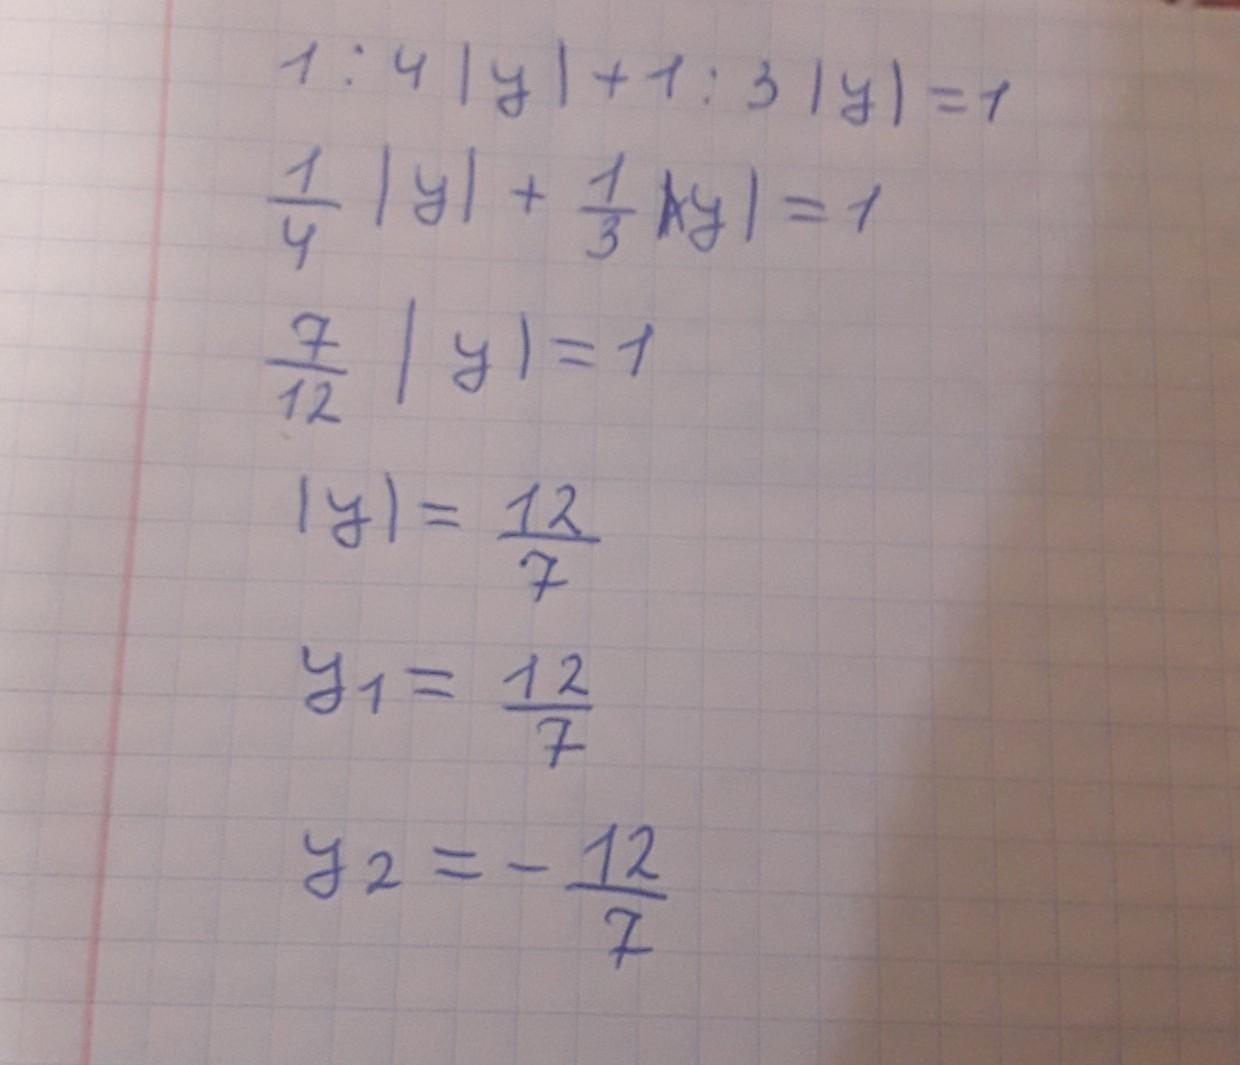 1 : 4 |y| + 1 : 3 |y| = 1
1/4 |y| + 1/3 |y| = 1
7/12 |y| = 1
|y| = 12/7
y1 = 12/7
y2 = - 12/7